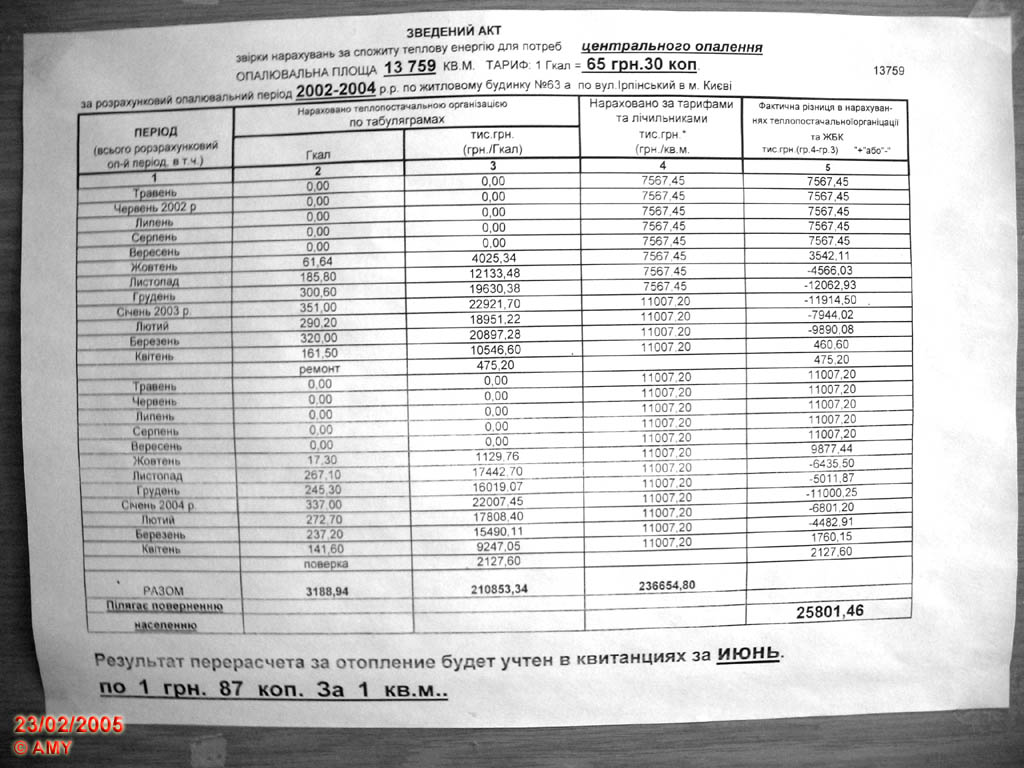 ЗВЕДЕНИЙ АКТ
звірки нарахувань за спожиту теплову енергію для потреб центрального опалення
ОПАЛЮВАЛЬНА ПЛОЩА 13 759 КВ.М. ТАРИФ: 1 Гкал = 65 грн.30 коп. 13759
за розрахунковий опалювальний період 2002-2004 р.р. по житловому будинку №63 а по вул.Ірпінський в м. Києві
ПЕРІОД (всього рорзрахунковий оп-й період, в т.ч.) Нараховано теплопостачальною організацією по табуляграмах Гкал тис.грн. (грн./Гкал) Нараховано за тарифами та лічильниками тис.грн.* (грн./кв.м. Фактична різниця в нарахуваннях теплопостачальноїорганіцації та ЖБК тис.грн.(гр.4-гр.3) "+"або"-"
1 2 3 4 5
Травень 0,00 0,00 7567,45 7567,45
Червень 2002 р 0,00 0,00 7567,45 7567,45
Липень 0,00 0,00 7567,45 7567,45
Серпень 0,00 0,00 7567,45 7567,45
Вересень 0,00 0,00 7567,45 7567,45
Жовтень 61,64 4025,34 7567,45 3542,11
Листопад 185,80 12133,48 7567,45 -4566,03
Грудень 300,60 19630,38 7567,45 -12062,93
Січень 2003 р. 351,00 22921,70 11007,20 -11914,50
Лютий 290,20 18951,22 11007,20 -7944,02
Березень 320,00 20897,28 11007,20 -9890,08
Квітень 161,50 10546,60 11007,20 460,60
ремонт 475,20 475,20
Травень 0,00 0,00 11007,20 11007,20
Червень 0,00 0,00 11007,20 11007,20
Липень 0,00 0,00 11007,20 11007,20
Серпень 0,00 0,00 11007,20 11007,20
Вересень 0,00 0,00 11007,20 11007,20
Жовтень 17,30 1129,76 11007,20 9877,44
Листопад 267,10 17442,70 11007,20 -6435,50
Грудень 245,30 16019,07 11007,20 -5011,87
Січень 2004 р 337,00 22007,45 11007,20 -11000,25
Лютий 272,70 17808,40 11007,20 -6801,20
Березень 237,20 15490,11 11007,20 -4482,91
Квітень 141,60 9247,05 11007,20 1760,15
поверка 2127,60 2127,60
РАЗОМ 3188,94 210853,34 236654,80
Пілягає поверненню 25801,46
населенню
Результат перерасчета за отопление будет учтен в квитанциях за ИЮНЬ.
по 1 грн. 87 коп. За 1 кв.м..
23/02/2005
© AMY